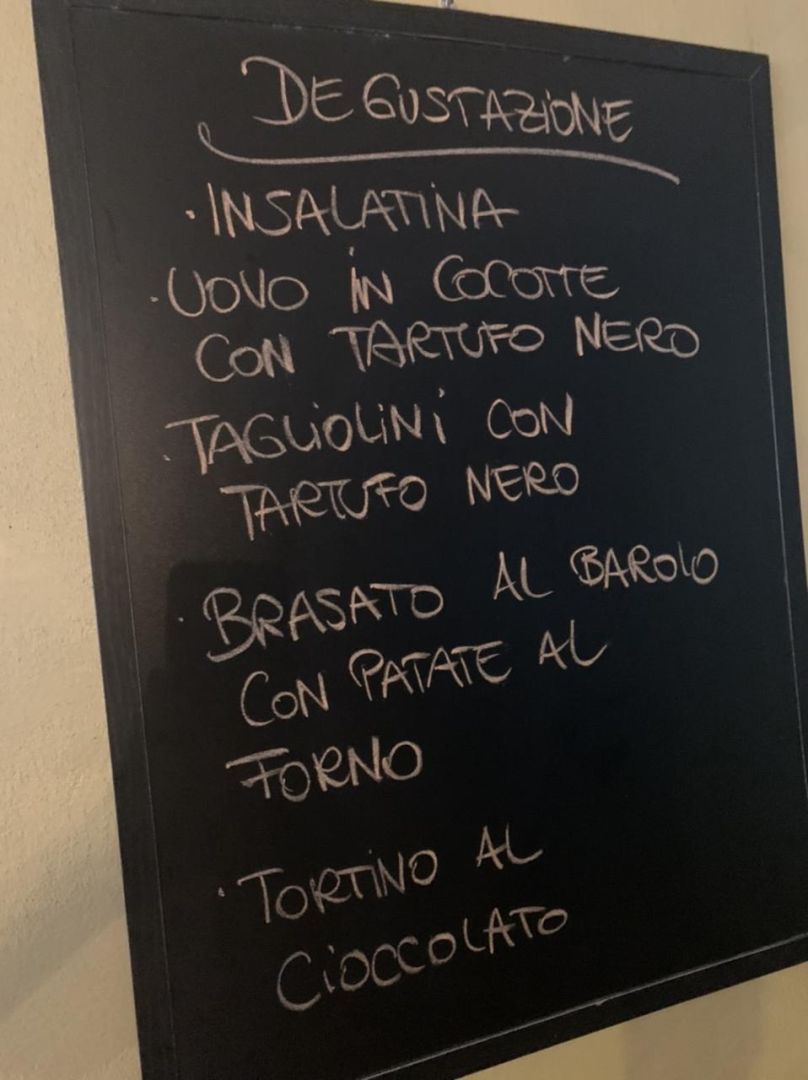 DEGUSTAZIONE
·INSALATINA
·UOVO IN COCOTTE
CON TARTUFO NERO
·TAGLIOLINI CON
TARTUFO NERO
·BRASATO AL BAROLO
CON PATATE AL
FORNO
·TORTINO AL
CIOCCOLATO